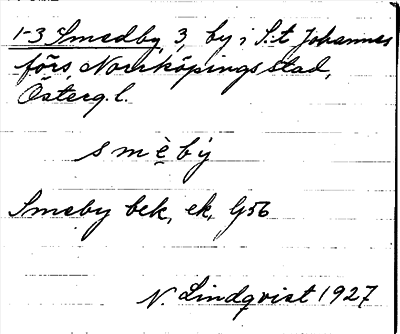 1-3 Smedby, 3, by i S:t Johannes
förs, Norrköpings stad,
Österg. l.
smè̱bý
Smeby bek, ek, G56
N. Lindqvist 1927